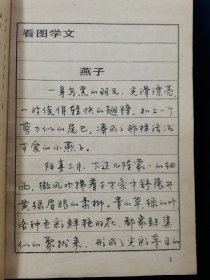 看图学文
燕子
一身乌黑的羽毛，光滑漂亮，
一对俊俏轻快的翅膀，加上一个
剪刀似的尾巴，凑成了那样活泼
可爱的小燕子。
阳春三月，下过几阵蒙蒙的细
雨，微风吹拂着千万条才舒展开
黄绿眉眼的柔柳。青的草，绿的叶，
各种色彩鲜艳的花，都像赶集
似的聚拢来，形成了光彩夺目的
1